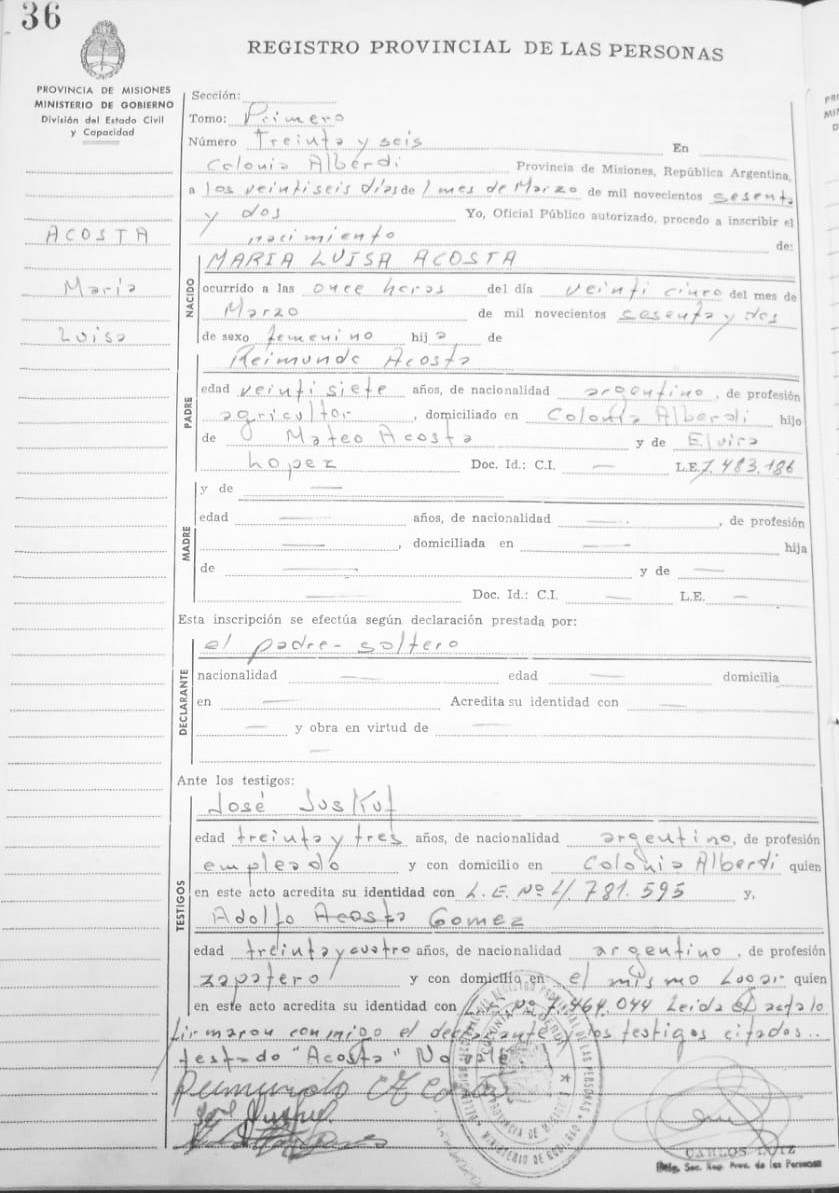 36
REGISTRO PROVINCIAL DE LAS PERSONAS
PROVINCIA DE MISIONES
MINISTERIO DE GOBIERNO
División del Estado Civil
y Capacidad
ACOSTA
María
Luisa
Sección:
Tomo: Primero
Número treinta y seis En
Colonia Alberdi Provincia de Misiones, República Argentina,
a los veintiseis días del mes de Marzo de mil novecientos sesenta
y dos Yo, Oficial Público autorizado, procedo a inscribir el
nacimiento de:
NACIDO
MARIA LUISA ACOSTA
ocurrido a las once horas del día veinti cinco del mes de
Marzo de mil novecientos sesenta y dos
de sexo femenino hija de
Reimundo Acosta
PADRE
edad veinti siete años, de nacionalidad argentino, de profesión
agricultor, domiciliado en Colonia Alberdi hijo
de Mateo Acosta y de Elvira
Lopez Doc. Id.: C.I. — L.E. 7.483.186
MADRE
y de —
edad — años, de nacionalidad —, de profesión
—, domiciliada en — hija
de — y de —
Doc. Id.: C.I. — L.E. —
Esta inscripción se efectúa según declaración prestada por:
el padre - soltero
DECLARANTE
nacionalidad — edad — domicilia
en — Acredita su identidad con —
— y obra en virtud de —
—
Ante los testigos:
TESTIGOS
José Juskuf
edad treinta y tres años, de nacionalidad argentino, de profesión
empleado y con domicilio en Colonia Alberdi quien
en este acto acredita su identidad con L.E. Nº 4.781.595 y,
Adolfo Acosta Gomez
edad treinta y cuatro años, de nacionalidad argentino, de profesión
zapatero y con domicilio en el mismo Lugar quien
en este acto acredita su identidad con Nº 7.464.044 Leida el acta lo
firmaron conmigo el declarante y los testigos citados..
testado "Acosta" No vale
CARLOS
Deleg. Sec. Reg. Prov. de las Personas